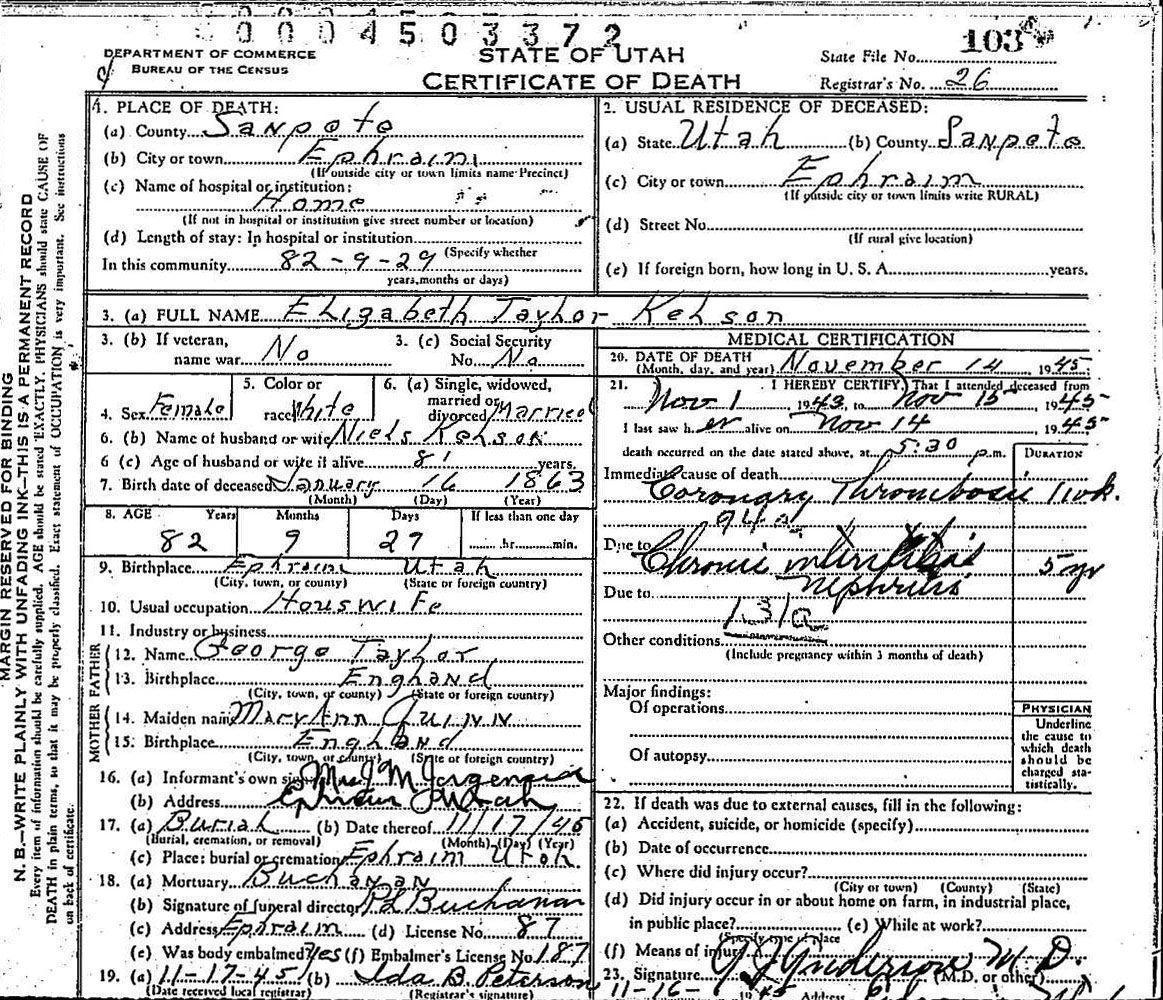 0004503372
DEPARTMENT OF COMMERCE
BUREAU OF THE CENSUS
STATE OF UTAH
CERTIFICATE OF DEATH
State File No. 103
Registrar's No. 26
1. PLACE OF DEATH:
(a) County Sanpete
(b) City or town Ephraim
(If outside city or town limits name Precinct)
(c) Name of hospital or institution:
Home
(If not in hospital or institution give street number or location)
(d) Length of stay: In hospital or institution
(Specify whether
In this community 82-9-29
years, months or days)
2. USUAL RESIDENCE OF DECEASED:
(a) State Utah (b) County Sanpete
(c) City or town Ephraim
(If outside city or town limits write RURAL)
(d) Street No.
(If rural give location)
(e) If foreign born, how long in U. S. A. years.
3. (a) FULL NAME Elizabeth Taylor Kelson
3. (b) If veteran, name war No
3. (c) Social Security No. No
4. Sex Female
5. Color or race White
6. (a) Single, widowed, married or divorced Married
6. (b) Name of husband or wife Niels Kelson
6 (c) Age of husband or wife if alive 81 years.
7. Birth date of deceased January 16 1863
(Month) (Day) (Year)
8. AGE Years Months Days If less than one day
82 9 27 hr. min.
9. Birthplace Ephraim Utah
(City, town, or county) (State or foreign country)
10. Usual occupation Houswife
11. Industry or business
FATHER
12. Name George Taylor
13. Birthplace England
(City, town, or county) (State or foreign country)
MOTHER
14. Maiden name Mary Ann Quinn
15. Birthplace England
(City, town, or county) (State or foreign country)
16. (a) Informant's own Mrs J M Jorgensen
(b) Address Ephraim Utah
17. (a) Burial (b) Date thereof 11/17/45
(Burial, cremation, or removal) (Month) (Day) (Year)
(c) Place: burial or cremation Ephraim Utah
18. (a) Mortuary Buchanan
(b) Signature of funeral director Buchanan
(c) Address Ephraim (d) License No. 87
(e) Was body embalmed? Yes (f) Embalmer's License No. 187
19. (a) 11-17-45 (b) Ida B. Peterson
(Date received local registrar) (Registrar's signature)
MEDICAL CERTIFICATION
20. DATE OF DEATH November 14 1945
(Month, day, and year)
21. I HEREBY CERTIFY, That I attended deceased from
Nov 1 1943, to Nov 15 1945
I last saw her alive on Nov 14 1945
death occurred on the date stated above, at 5:30 p.m.
DURATION
Immediate cause of death
Coronary Thrombosis 1 wk.
94a
Due to Chronic interstitial 5 yr
Nephritis
Due to
131a
Other conditions
(Include pregnancy within 3 months of death)
Major findings:
Of operations
Of autopsy
PHYSICIAN
Underline
the cause to
which death
should be
charged sta-
tistically.
22. If death was due to external causes, fill in the following:
(a) Accident, suicide, or homicide (specify)
(b) Date of occurrence
(c) Where did injury occur?
(City or town) (County) (State)
(d) Did injury occur in or about home on farm, in industrial place,
in public place? (e) While at work?
(Specify type of place
(f) Means of injury
23. Signature Anderson M.D.
(M.D. or other)
11-16- 1945 Address
MARGIN RESERVED FOR BINDING
N. B.—WRITE PLAINLY WITH UNFADING INK—THIS IS A PERMANENT RECORD
Every item of information should be carefully supplied. AGE should be stated EXACTLY. PHYSICIANS should state CAUSE OF
DEATH in plain terms, so that it may be properly classified. Exact statement of OCCUPATION is very important. See instructions
on back of certificate.